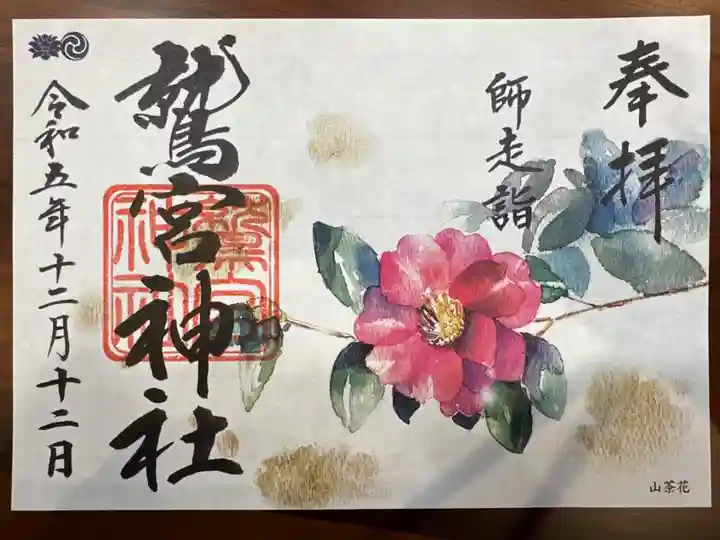 奉拝
師走詣
鷲宮神社
令和五年十二月十二日
山茶花